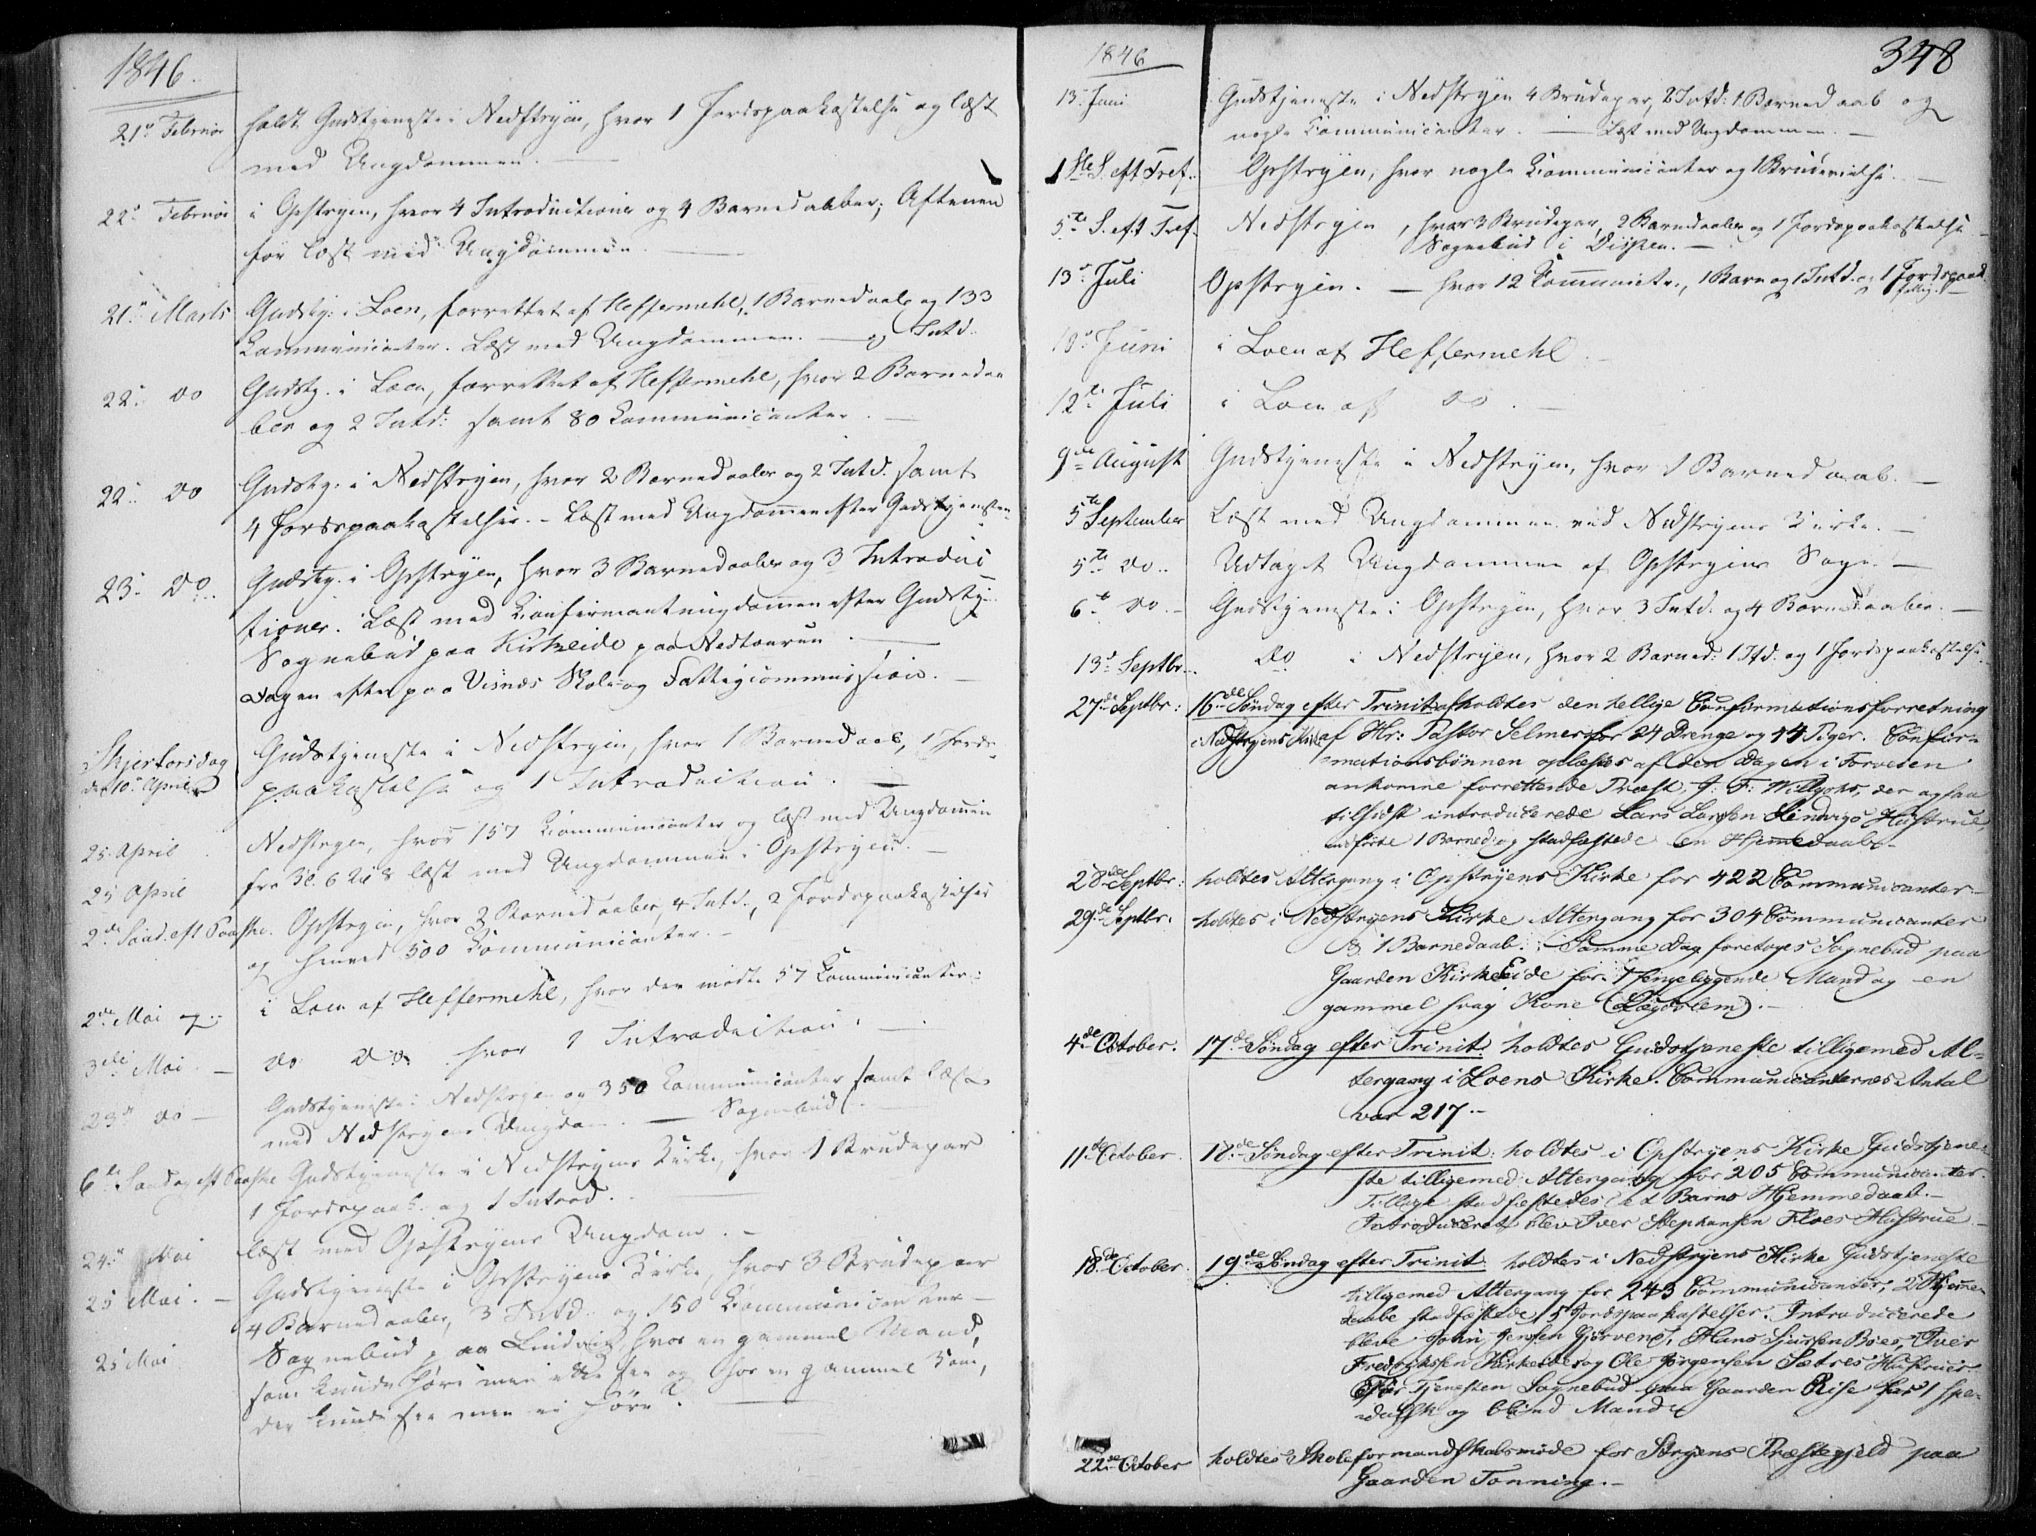 1846.
21de Februar holdt Gudstjeneste i Nedstryen, hvor 1 Jordspaakastelse og læst
med Ungdommen.
22de Februar i Opstryen, hvor 4 Introductioner og 4 Barnedaaber; Aftenen
før læst med Ungdommen
21de Marts Gudstj: i Loen, forrettet af Heffermehl, 1 Barnedaab og 133
Kommunicanter. Læst med Ungdommen. — og Intd.
22de do Gudstj. i Loen, forrettet af Heffermehl, hvor 2 Barnedaa
ber og 2 Intd: samt 80 Kommunicanter. —
22de do Gudstj: i Nedstryen, hvor 2 Barnedaaber og 2 Intd. samt
4 Jordspaakastelser. – Læst med Ungdommen efter Gudstjenesten
23de do.. Gudstj. i Opstryen, hvor 3 Barnedaaber og 3 Introduc
tioner. Læst med Confirmantungdommen efter Gudstj:
Sognebud paa Kirkeeide paa Nedtouren. —
Dagen efter paa Visnæs Skole- og Fattigcommission. —
Skjertorsdag Gudstjeneste i Nedstryen, hvor 1 Barnedaab, 1 Jords-
d. 10de April paakastelse og 1 Introduction. —
25 April Nedstryen, hvor 157 Kommunicanter og læst med Ungdommen
25 April fra Kl. 6 til 8 læst med Ungdommen i Opstryen. —
2de Sønd. eft Paaske. Opstryen, hvor 2 Barnedaaber, 4 Intd., 2 Jordspaakastelser
og henved 500 Kommunicanter. –
2den Mai i Loen af Heffermehl, hvor der mødte 57 Kommunicanter:
3die Mai. — do do hvor 1 Introduction. —
23de do — Gudstjeneste i Nedstryen og 350 Kommunicanter samt læst
med Nedstryens Ungdom. — Sognebud. —
6te Søndag eft Paaske Gudstjeneste i Nedstryens Kirke, hvor 1 Brudepar
1 Jordspaak. og 1 Introd.
24de Mai læst med Opstryens Ungdom. –
25 Mai. — Gudstjeneste i Opstryens Kirke, hvor 3 Brudepar
4 Barnedaaber, 3 Intd. og 150 Kommunicanter —
25 Mai. Sognebud paa hvor en gammel Mand,
som kunde høre men ikke see og hos en gammel Kone,
der kunde see men ei høre. —
1846
348
13de Juni Gudstjeneste i Nedstryen 4 Brudepar, 2 Intd: 1 Barnedaab og
nogle Communicanter. — Læst med Ungdommen. —
1ste S. eft Tref. Opstryen, hvor nogle Kommunicanter og 1 Brudevielse. —
5te S. eft Tref. Nedstryen, hvor 3 Brudepar, 2 Barnedaaber og 1 Jordspaakastelse
Sognebud i —
13de Juli Opstryen. — hvor 12 Communic., 1 Barn og 1 Intd. og 1 Jordspaak
Juni i Loen af Heffermehl. —
12te Juli i Loen af do. —
9de August Gudstjeneste i Nedstryen, hvor 1 Barnedaab. —
5te September Læst med Ungdommen ved Nedstryens Kirke. —
5te do.. Udtaget Ungdommen af Opstryens Sogn. —
6te do. – Gudstjeneste i Opstryen, hvor 3 Intd. og 4 Barnedaaber. —
13de Septbr.. do i Nedstryen, hvor 2 Barned: 1 Itd. og 1 Jordspaakastelse
27de Septbr: 16de Søndag efter Trinit. afholdtes den hellige Confirmationsforretning
i Nedstryens Kirke af Hr: Pastor Selmer for 24 Drenge og 14 Piger. Confir-
mationsbønnen oplæstes af den Dagen i Forveien
ankomne forrettende Præst, J. F. Willgohs, der ogsaa
tilsidst introducerede Lars Larsen Hustrue,
udførte 1 Barned. og stadfæstede en Hjemedaab. –
28de Septbr: holdtes Altergang i Opstryens Kirke for 422 Communicanter. –
29de Septbr. holdtes i Nedstryens Kirke Altergang for 304 Communicanter
& 1 Barnedaab. Samme Dag foretoges Sognebud paa
Gaarden KirkeEide for 1 sengeliggende Mand og en
gammel svag Kone (Lægdslem). –
4de October. 17de Søndag efter Trinit. holdtes Gudstjeneste tilligemed Al-
tergang i Loens Kirke. Communicanternes Antal
var 217. –
11te October. 18de Søndag efter Trinit: holdtes i Opstryens Kirke Gudstjene-
ste tilligemed Altergang for 205 Communicanter.
Tillige stadfæstedes et Barns Hjemmedaab. –
Introduceret blev Iver Stephansen Floes Hustrue. –
18de October 19de Søndag efter Trinit: holdtes i Nedstryens Kirke Gudstjeneste
tilligemed Altergang for 243 Communicanter; 2 Hjemme-
daabe stadfæstede, 5 Jordspaakastelser. Introducerede
bleve John Jensen Gjørvens, Hans Sjursen Bøes, Iver
Fredriksen Kirkeides og Ole Jørgensen Sætres Hustruer.
Før Tjenesten Sognebud paa Gaarden Rise for 1 spe-
dalsk og blind Mand.
22de October holdtes Skoleformandskabsmøde for Stryens Præstegjeld paa
Gaarden Tonning. –